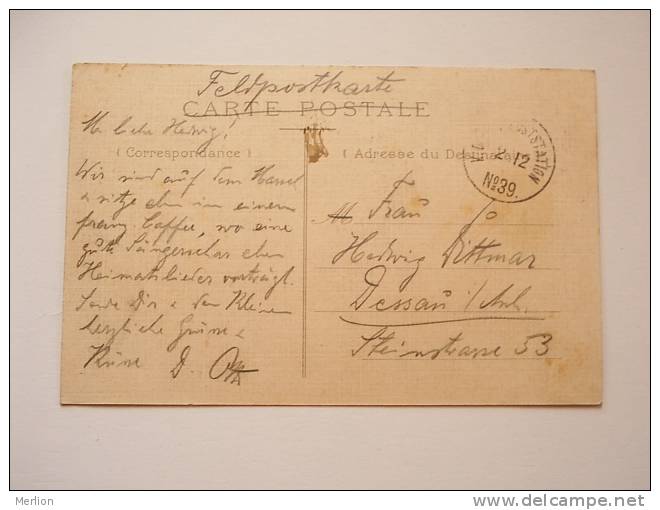 Feldpostkarte
CARTE POSTALE
M liebe Hedwig!
( Correspondance )
( Adresse du Destinataire
POSTSTATION
2 12
No 39.
Wir sind auf dem
& sitze eben in einem
franz. Caffee, wo eine
gute Sängerschar eben
Heimatslieder vorträgt.
Sende Dir & den Kleinen
herzliche Grüsse &
Küsse D. Otto
Frau
Hedwig Dittmar
Dessau i/Anh.
Steinstrasse 53
Merlion
www.delcampe.net